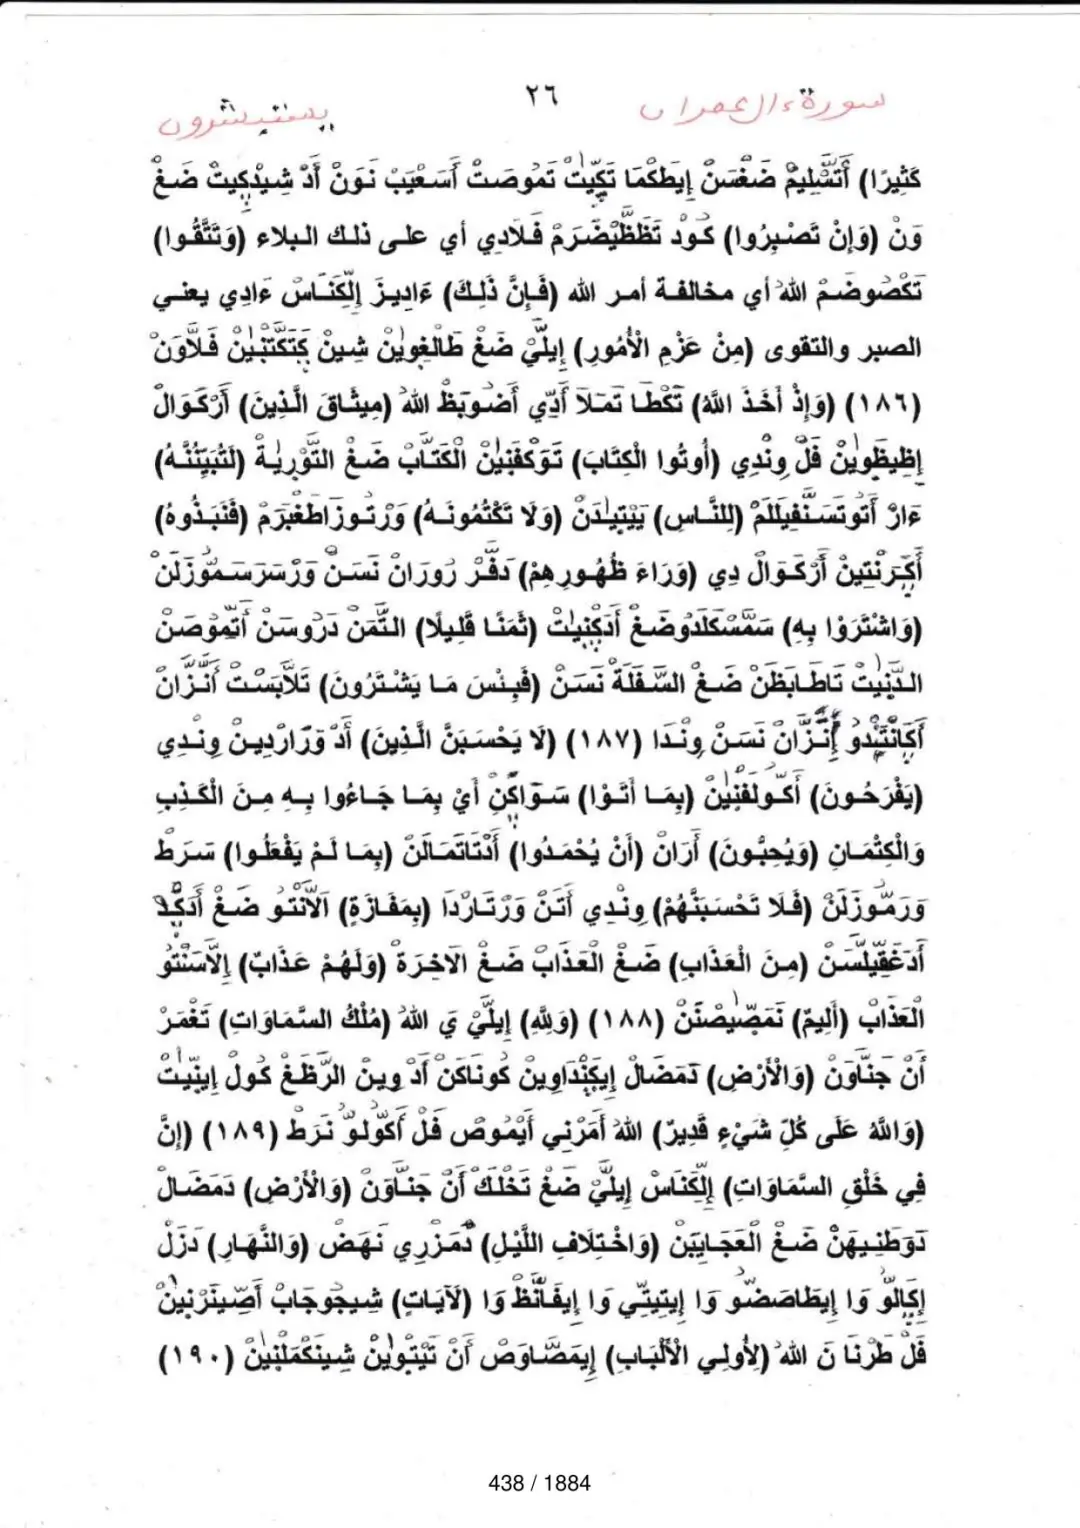 سورة ءال عمران
٢٦
يستبشرون
كَثِيرًا) أَتَسَّلِيمْ ضَغْسَنْ إِيَطْكُمَا تَكِّيتْ تَمُوصَتْ أَسَعْيَبْ نَوَنْ أَدْ شِيدْكِيتْ ضَغْ
وَنْ (وَإِنْ تَصْبِرُوا) كُودْ تَظَظَّيْضَرَمْ فَلَادِي أي على ذلك البلاء (وَتَتَّقُوا)
تَكْصُوضَمْ اللهْ أي مخالفة أمر الله (فَإِنَّ ذَلِكَ) ءَادِيزْ إِلْكَنَاسْ ءَادِي يعني
الصبر والتقوى (مِنْ عَزْمِ الْأُمُورِ) إِيلَيْ ضَغْ طَالْغِوِينْ شِينْ كَتَكْتَبْنِينْ فَلَّاوَنْ
(١٨٦) (وَإِذْ أَخَذَ اللَّهُ) تَكْطَا تَمَلَا أَدِّي أَضُوبَظْ اللهْ (مِيثَاقَ الَّذِينَ) أَرْكَوَالْ
إِظِيظَوِينْ فَلْ وِنْدِي (أُوتُوا الْكِتَابَ) تَوَكْفَنِينْ الْكَتَابْ ضَغْ التَّوْرِيَةْ (لَتُبَيِّنُنَّهُ)
ءَارْ أَتُوتَسَنْفَيلَلَمْ (لِلنَّاسِ) يَيْتِيدَنْ (وَلَا تَكْتُمُونَهُ) وَرْتُوزَاطْغْبَرَمْ (فَنَبَذُوهُ)
أَكَّرَنْتِينْ أَرْكَوَالْ دِي (وَرَاءَ ظُهُورِهِمْ) دَفَّرْ رُورَانْ نَسَنْ وَرْسَرَسَمُّوزَلَنْ
(وَاشْتَرَوْا بِهِ) سَمَّسْكَلَدُوضَغْ أَدَكْنِيتْ (ثَمَنًا قَلِيلًا) التَّمَنْ دَرُوسَنْ أَتِّمُوصَنْ
الدُّنِيتْ تَاطَابَظَنْ ضَغْ السَّفَلَةْ نَسَنْ (فَبِئْسَ مَا يَشْتَرُونَ) تَلَابَسْتْ أَنَزَّانْ
أَكَانْتَنِدُو إِنَزَّانْ نَسَنْ وِنْدَا (١٨٧) (لَا يَحْسَبَنَّ الَّذِينَ) أَدْ وَرَارْدِينْ وِنْدِي
(يَفْرَحُونَ) أَكُولَفْنِينْ (بِمَا أَتَوْا) سَوَاكَنْ أَيْ بِمَا جَاءُوا بِهِ مِنَ الْكَذِبِ
وَالْكِتْمَانِ (وَيُحِبُّونَ) أَرَانْ (أَنْ يُحْمَدُوا) أَدْتَاتَمَالَنْ (بِمَا لَمْ يَفْعَلُوا) سَرَطْ
وَرَمُّوزَلَنْ (فَلَا تَحْسَبَنَّهُمْ) وِنْدِي أَتَنْ وَرْتَارْدَا (بِمَفَازَةٍ) آلَانْتُو ضَغْ أَدَكْدْ
أَدَغَفِّيلَسَنْ (مِنَ الْعَذَابِ) ضَغْ الْعَذَابْ ضَغْ الْآخِرَةْ (وَلَهُمْ عَذَابٌ) إِلَّاسَنْتُو
الْعَذَابْ (أَلِيمٌ) نَمَصِّيصْنَنْ (١٨٨) (وَلِلَّهِ) إِيلَيْ يَ اللهْ (مُلْكُ السَّمَاوَاتِ) تَغْمَرْ
أَنْ جَنَّاوَنْ (وَالْأَرْضِ) دَمَضَالْ إِيكِنْدَاوِينْ كُونَاكَنْ أَدْ وِينْ الرَّظَغْ كُولْ إِينِّيتْ
(وَاللَّهُ عَلَى كُلِّ شَيْءٍ قَدِيرٌ) اللهْ أَمَرْنِي أَيْمُوصْ فَلْ أَكُولُو نَرَطْ (١٨٩) (إِنَّ
فِي خَلْقِ السَّمَاوَاتِ) إِلْكَنَاسْ إِيلَيْ ضَغْ تَخْلَكْ أَنْ جَنَّاوَنْ (وَالْأَرْضِ) دَمَضَالْ
دَوَطَنِيهَنْ ضَغْ الْعَجَايَبَنْ (وَاخْتِلَافِ اللَّيْلِ) دَمَزْرِي نَهَضْ (وَالنَّهَارِ) دَزَلْ
إِكَالُو وَا إِيطَاصَضُو وَا إِيتِيتِّي وَا إِيفَانَّظْ وَا (لَآيَاتٍ) شِيجُوجَابْ أَصِّينَرْنِينْ
فَلْ طَرْنَا نَ اللهْ (لِأُولِي الْأَلْبَابِ) إِيمَصَّاوَصْ أَنْ تَيْتَوِينْ شِينَكْمَلْنِينْ (١٩٠)
438 / 1884